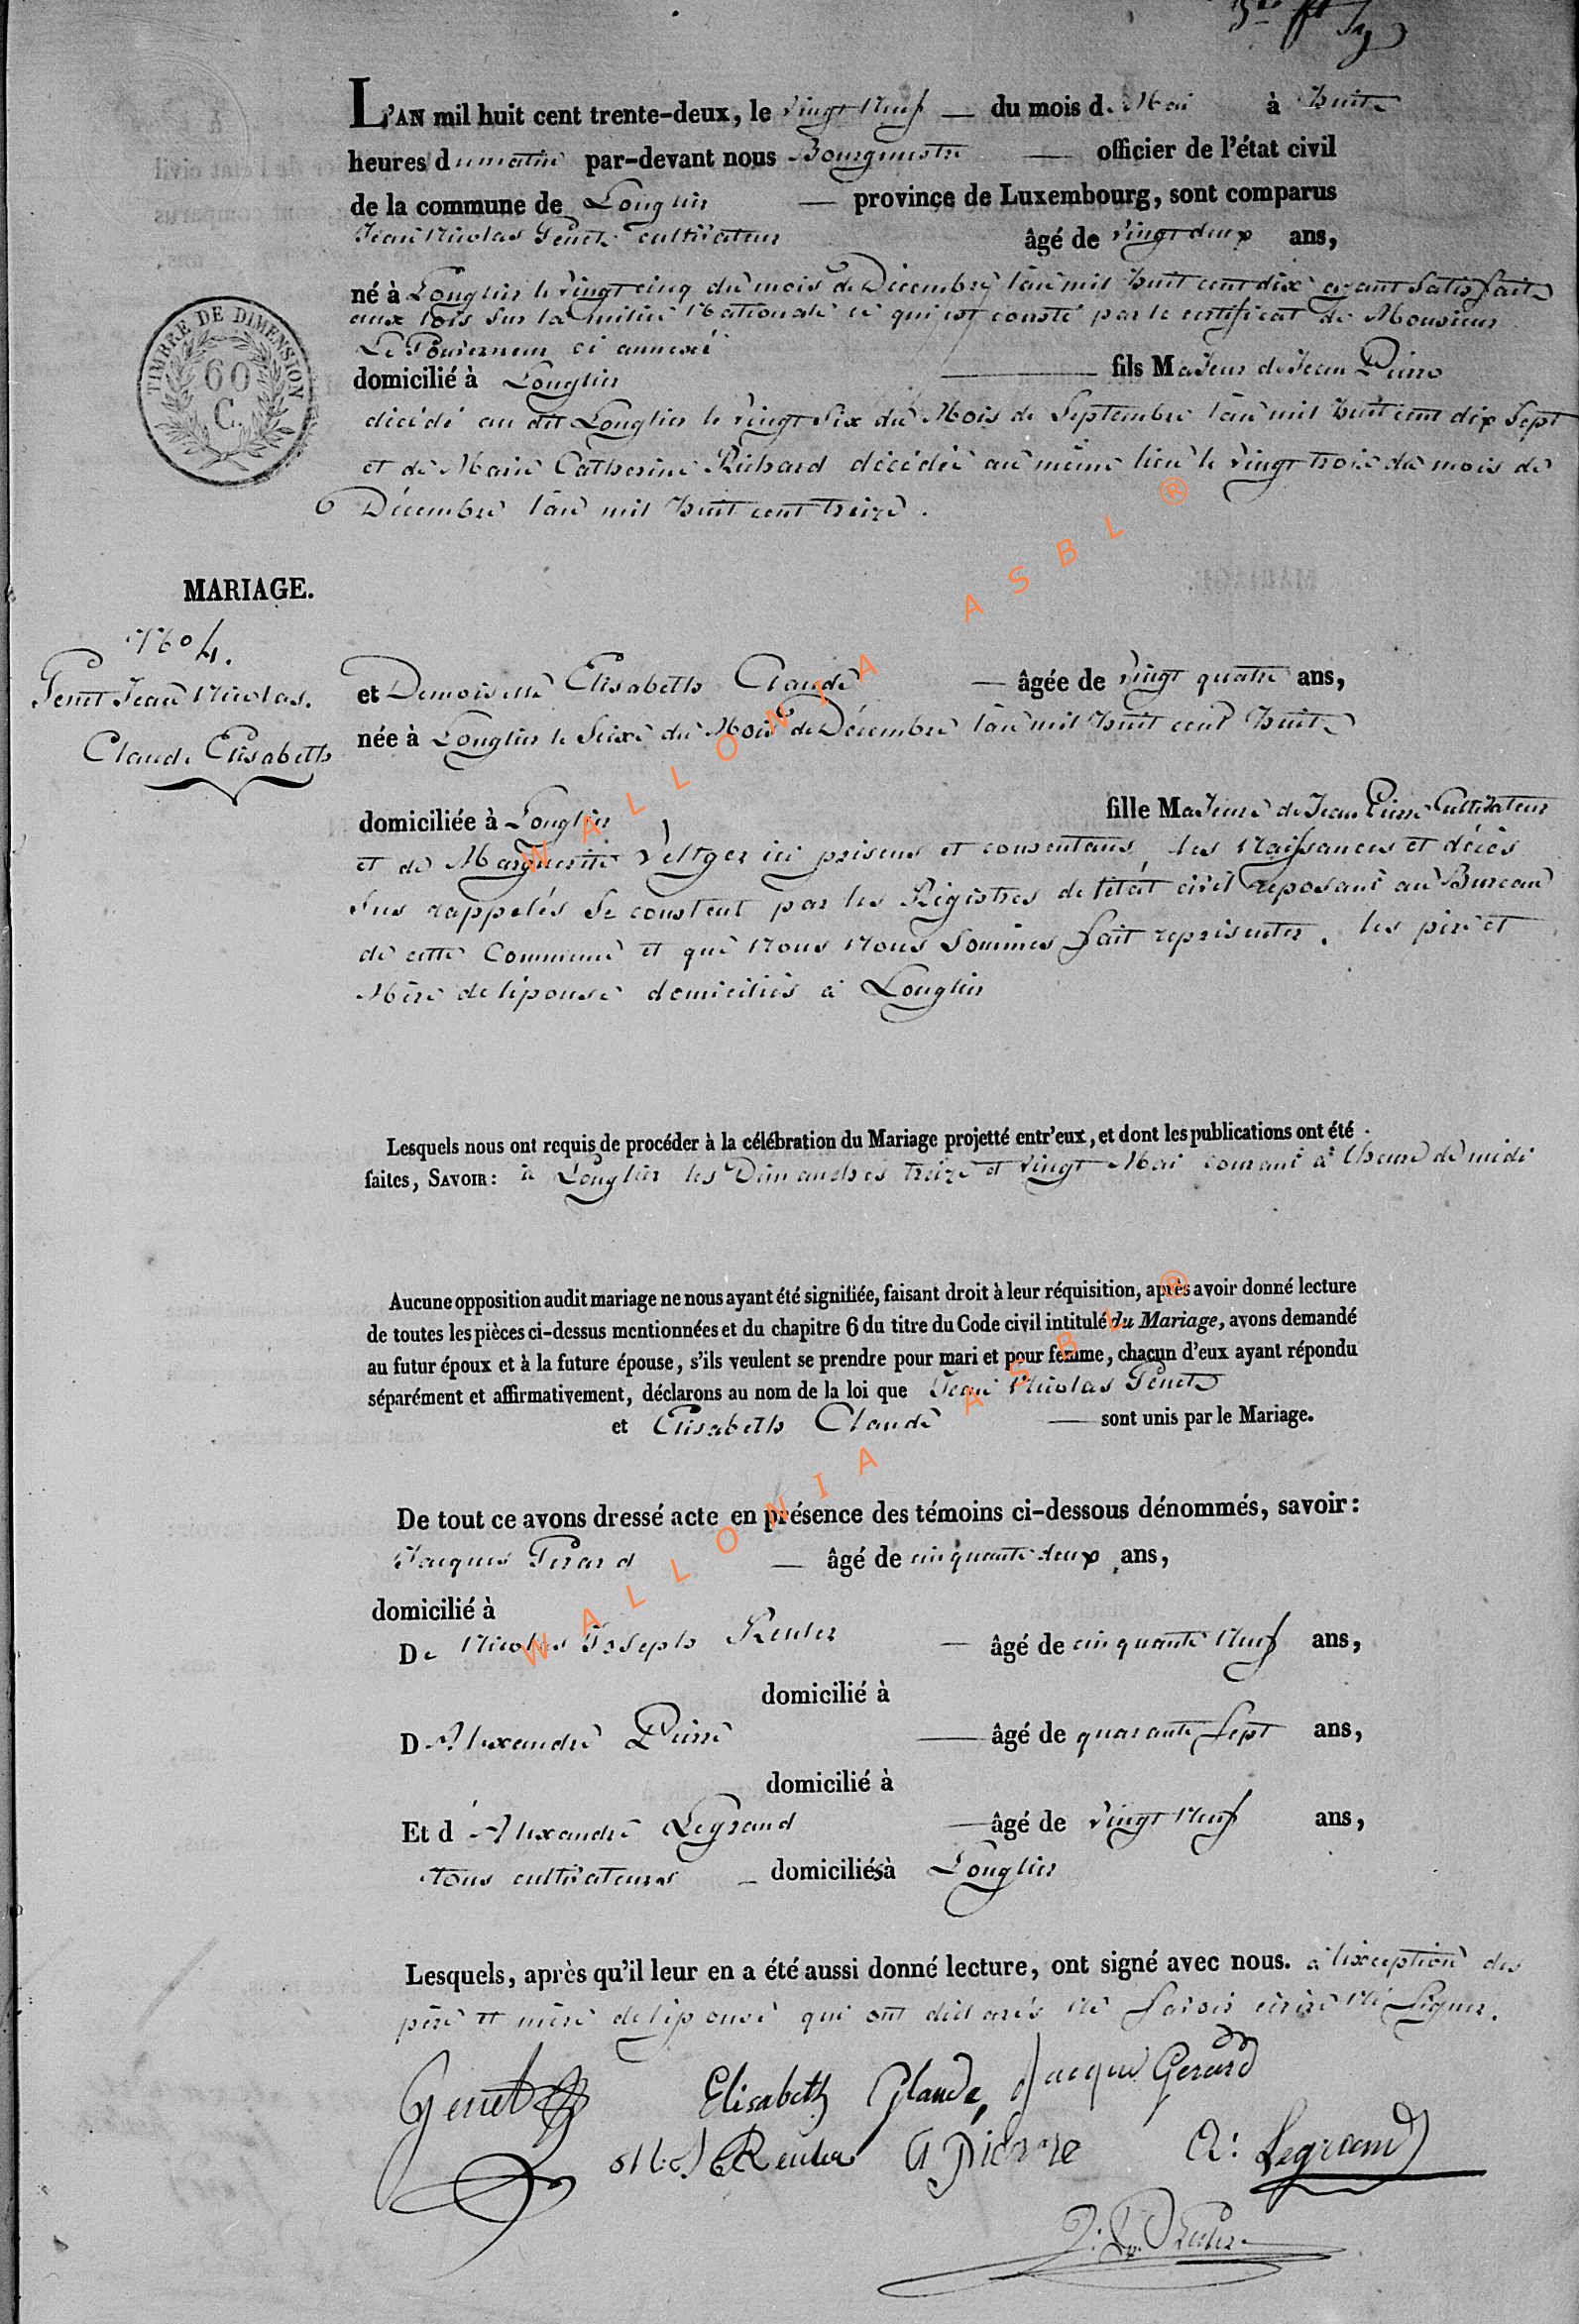 L'AN mil huit cent trente-deux, le vingt Neuf — du mois de Mai à huite
heures du matin par-devant nous Bourgmestre — officier de l'état civil
de la commune de Longlier — province de Luxembourg, sont comparus
Jean Nicolas Genet cultivateur âgé de vingt deux ans,
né à Longlier le vingt cinq du mois de Décembre l'an mil huit cent dix ayant satisfait
aux lois sur la milice Nationale ce qui est consté par le certificat de Monsieur
Le Gouverneur ci annexé
domicilié à Longlier — fils Majeur de Jean Pierre
décédé au dit Longlier le vingt six du Mois de Septembre l'an mil huit cent dix sept
et de Marie Catherine Richard décédée au même lieu le vingt trois du mois de
Décembre l'an mil huit cent treize.
TIMBRE DE DIMENSION
60
C.
MARIAGE.
No 4.
Genet Jean Nicolas.
Claude Elisabeth
et Demoiselle Elisabeth Claude — âgée de vingt quatre ans,
née à Longlier le Seize du Mois de Décembre l'an mil huit cent huite
domiciliée à Longlier fille Majeure de Jean Pierre Cultivateur
et de Marguerite Veltger ici présens et consentans, les Naissances et décès
sus rappelés se constent par les Régistres de l'état civil reposant au Bureau
de cette Commune et que Nous Nous sommes fait représenter. les père et
Mère de l'épouse domiciliés à Longlier
Lesquels nous ont requis de procéder à la célébration du Mariage projetté entr'eux, et dont les publications ont été
faites, SAVOIR: à Longlier les Dimanches treize et vingt Mai courant à l'heure de midi
Aucune opposition audit mariage ne nous ayant été signifiée, faisant droit à leur réquisition, après avoir donné lecture
de toutes les pièces ci-dessus mentionnées et du chapitre 6 du titre du Code civil intitulé du Mariage, avons demandé
au futur époux et à la future épouse, s'ils veulent se prendre pour mari et pour femme, chacun d'eux ayant répondu
séparément et affirmativement, déclarons au nom de la loi que Jean Nicolas Genet
et Elisabeth Claude — sont unis par le Mariage.
De tout ce avons dressé acte en présence des témoins ci-dessous dénommés, savoir:
Jacques Gerard — âgé de cinquante deux ans,
domicilié à
De Nicolas Joseph Reuler — âgé de cinquante Neuf ans,
domicilié à
D Alexandre Pierre — âgé de quarante sept ans,
domicilié à
Et d'Alexandre Legrand — âgé de vingt Neuf ans,
tous cultivateurs — domiciliés à Longlier
Lesquels, après qu'il leur en a été aussi donné lecture, ont signé avec nous. à l'exception des
père et mère de l'épouse qui ont déclarés Ne savoir écrire Ni Signer.
Genet Elisabeth Glaude, Jacque Gerard
Reuler A Pierre A: Legrand
WALLONIA ASBL ®
WALLONIA ASBL ®